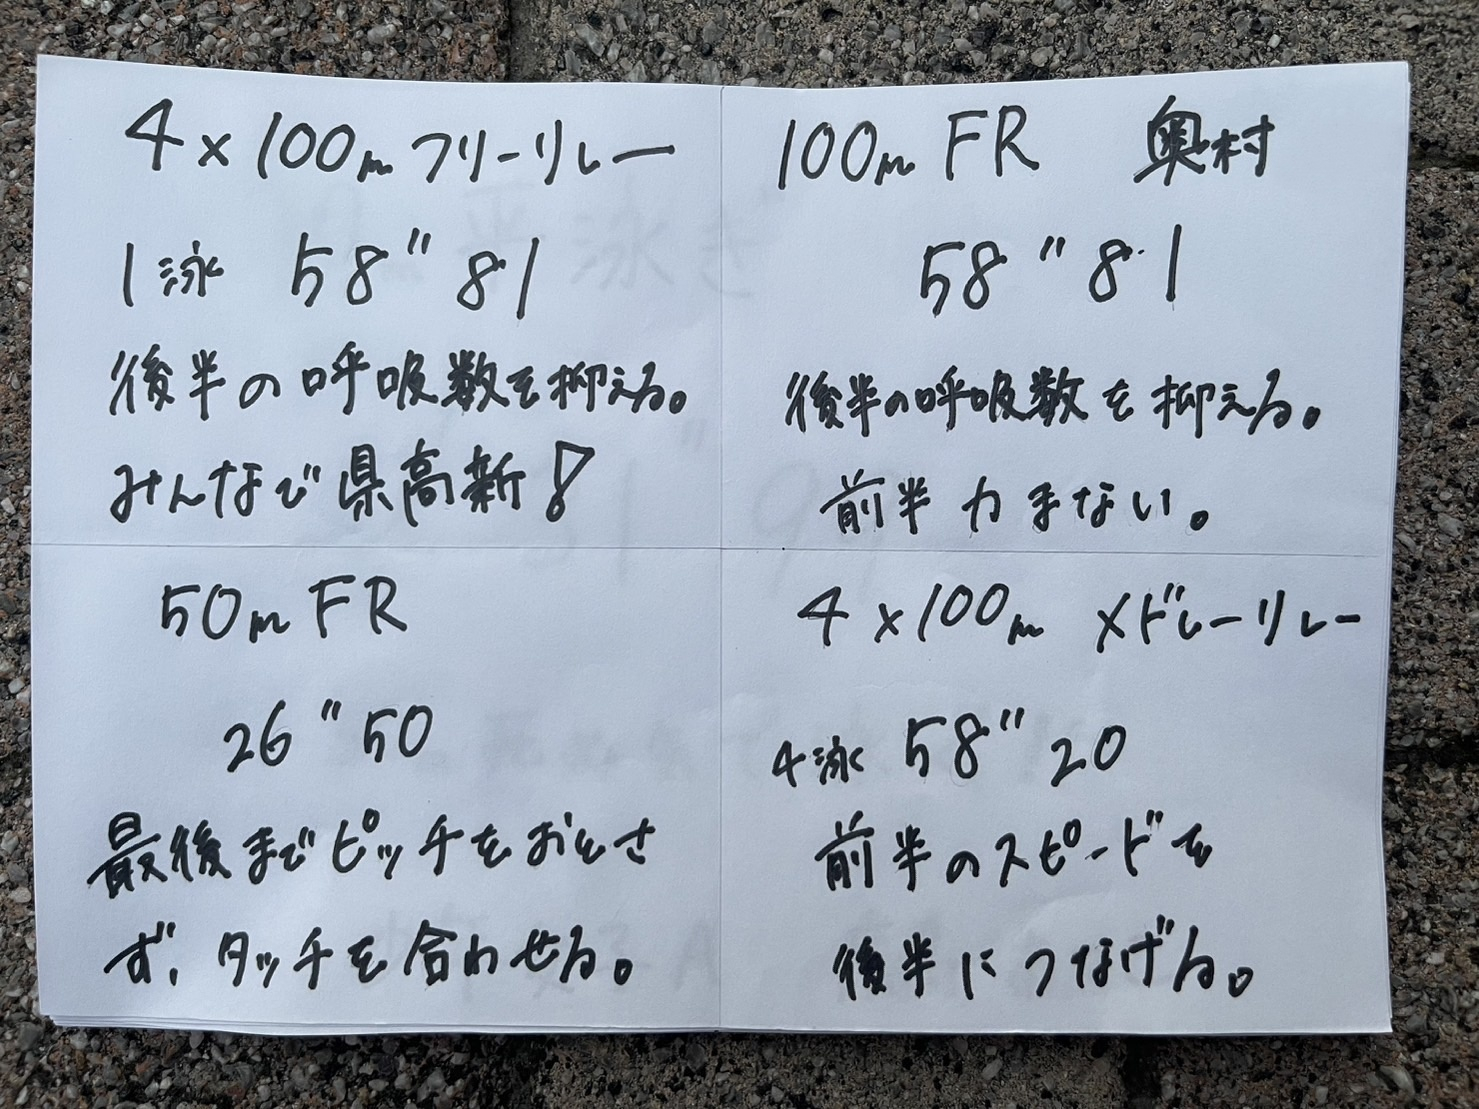 4×100mフリーリレー
1泳 58"81
後半の呼吸数を抑える。
みんなで県高新!
100m FR 奥村
58"81
後半の呼吸数を抑える。
前半力まない。
50m FR
26"50
最後までピッチをおとさ
ず、タッチを合わせる。
4×100m メドレーリレー
4泳 58"20
前半のスピードを
後半につなげる。